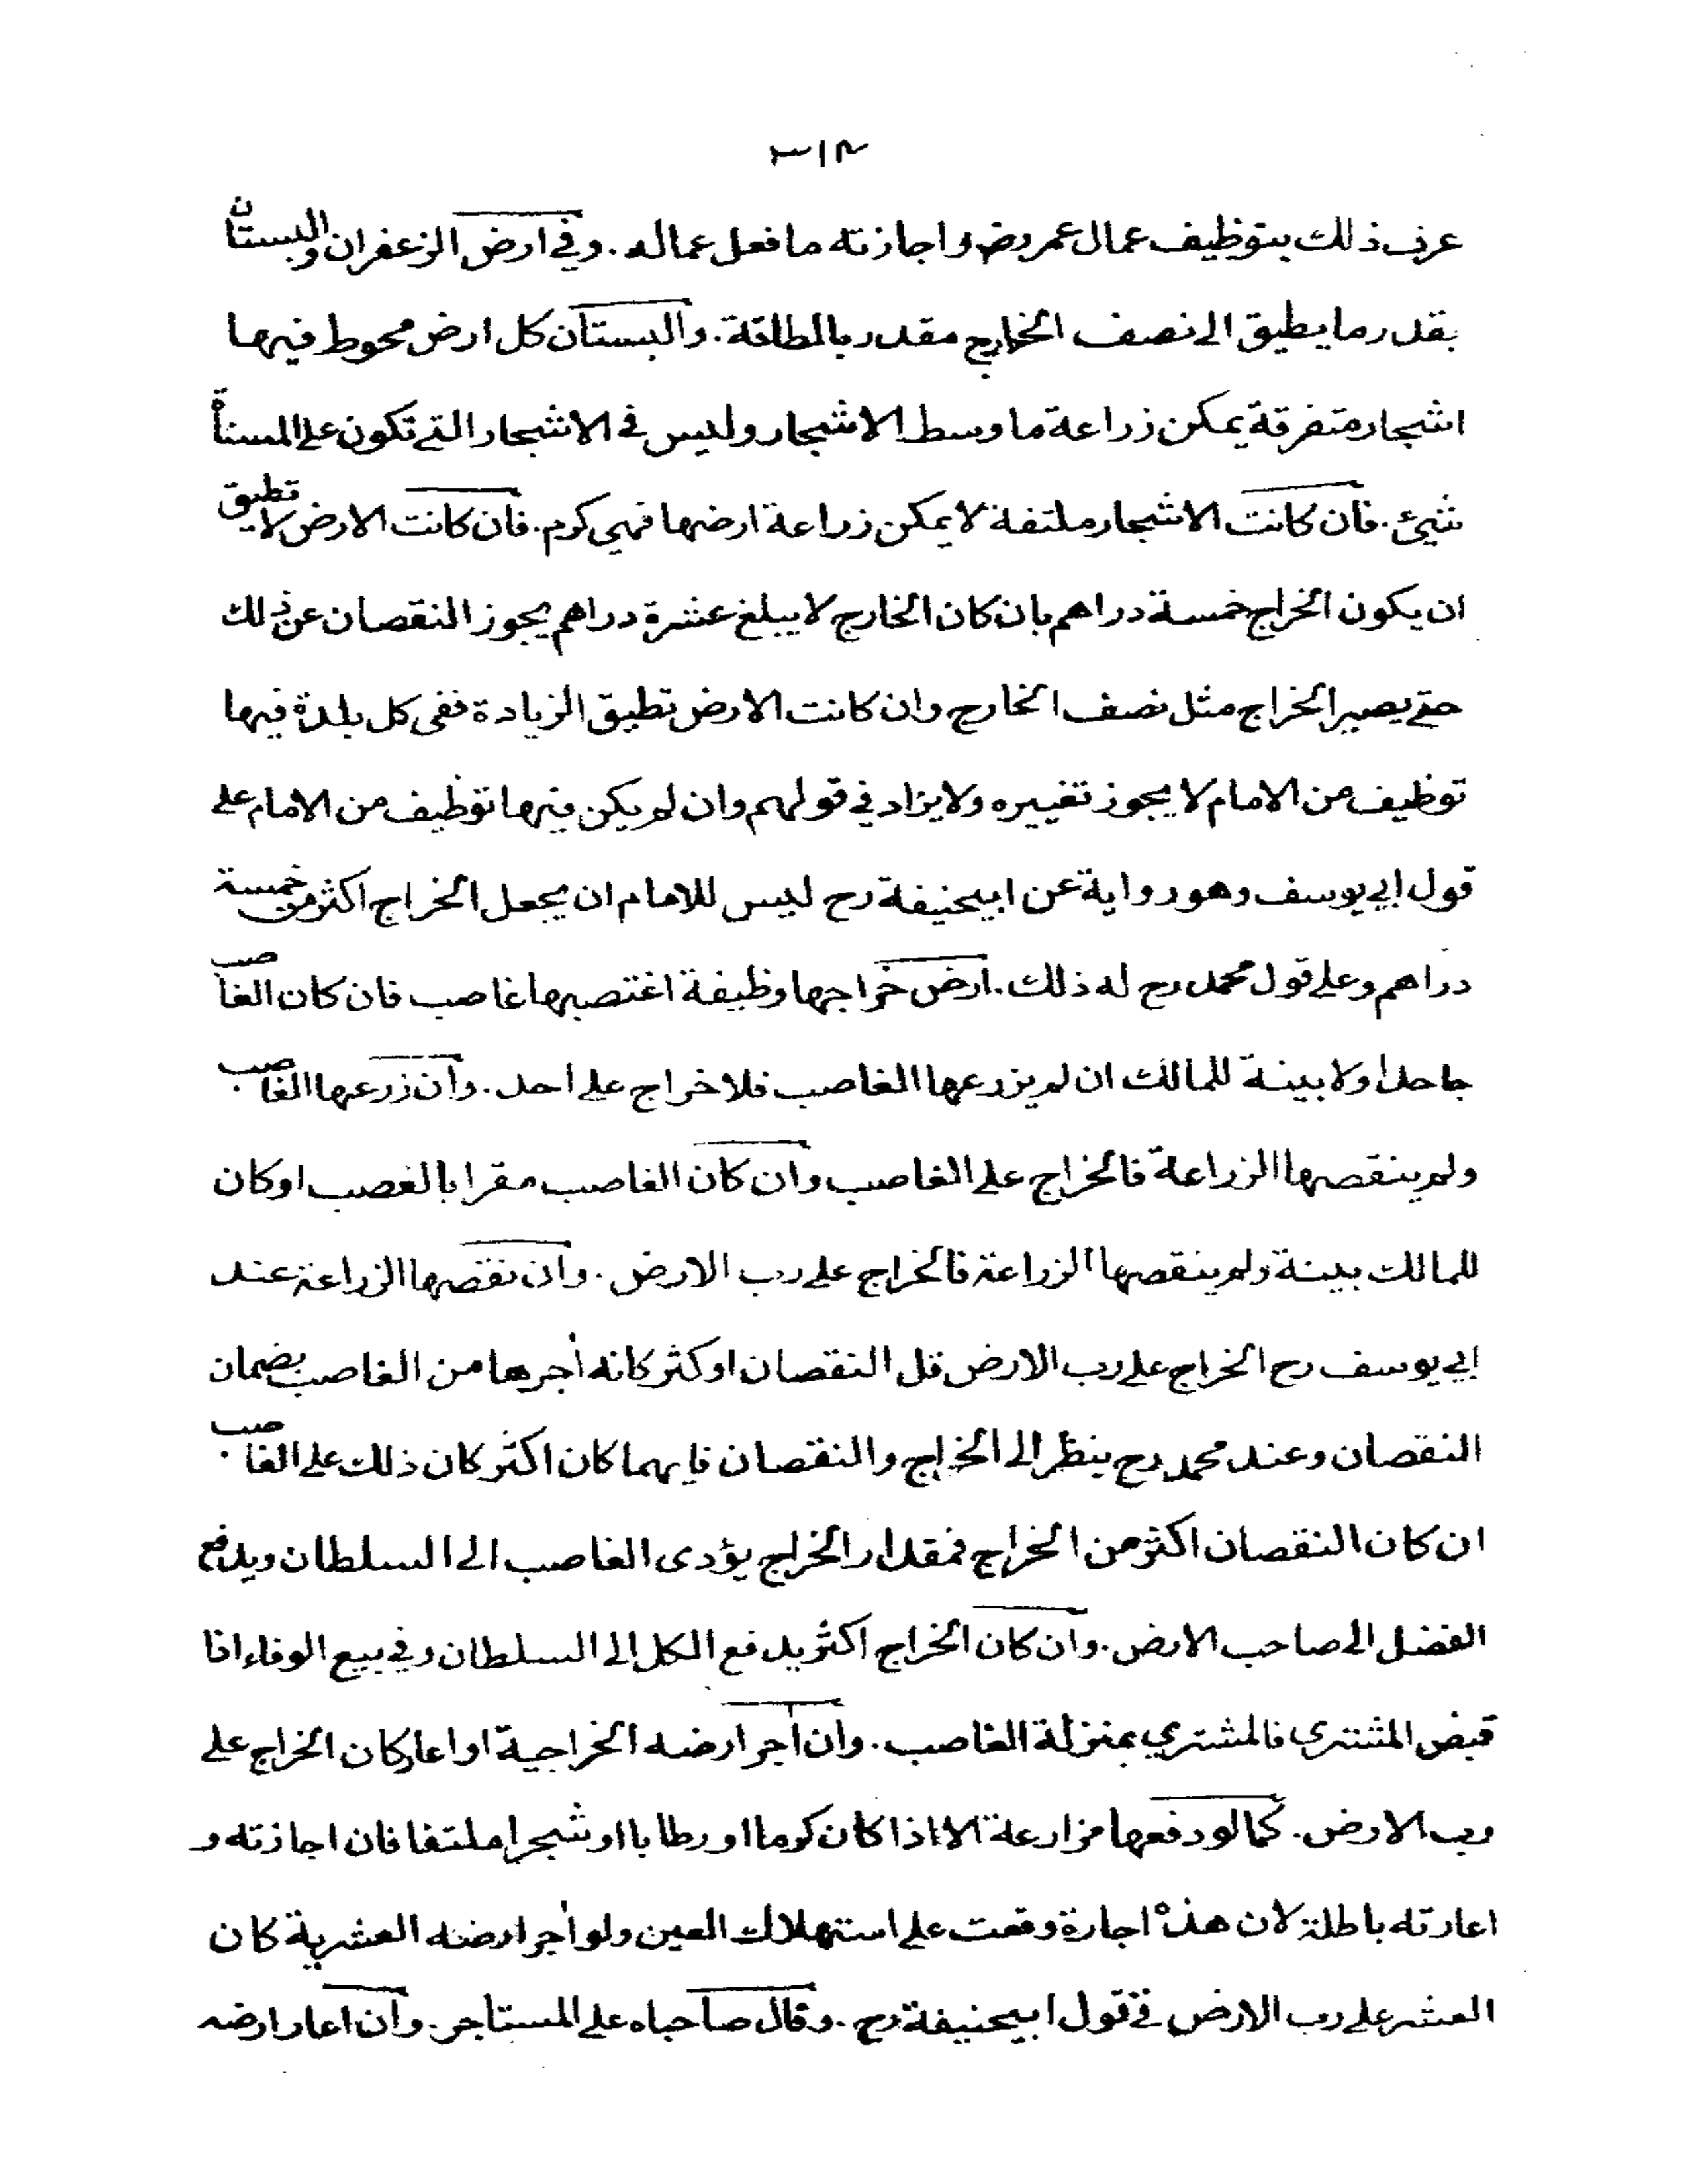 عرف ذلك بتوظيف عمال عمر رض واجازته ما فعل عماله . وفي ارض الزعفران والبستان
بقدر ما يطيق الى نصف الخارج مقدر بالطاقة . والبستان كل ارض محوط فيها
اشجار متفرقة يمكن زراعة ما وسط الاشجار وليس في الاشجار التي تكون على المسناة
شيئ . فان كانت الاشجار ملتفة لا يمكن زراعة ارضها فهي كرم . فان كانت الارض لا تطيق
ان يكون الخراج خمسة دراهم بان كان الخارج لا يبلغ عشرة دراهم يجوز النقصان عن ذلك
حتى يصير الخراج مثل نصف الخارج وان كانت الارض تطيق الزيادة ففي كل بلدة فيها
توظيف من الامام لا يجوز تغييره ولا يزاد في قولهم وان لم يكن فيها توظيف من الامام على
قول ابي يوسف وهو رواية عن ابيحنيفة رح ليس للامام ان يجعل الخراج اكثر من خمسة
دراهم وعلى قول محمد رح له ذلك . ارض خراجها وظيفة اغتصبها غاصب فان كان الغاصب
جاحدا ولا بينة للمالك ان لم يزرعها الغاصب فلا خراج على احد . وان زرعها الغاصب
ولم ينقصها الزراعة فالخراج على الغاصب وان كان الغاصب مقرا بالغصب او كان
للمالك بينة ولم ينقصها الزراعة فالخراج على رب الارض . وان نقصها الزراعة عند
ابي يوسف رح الخراج على رب الارض قل النقصان او كثر كانه أجرها من الغاصب بضمان
النقصان وعند محمد رح ينظر الى الخراج والنقصان فايهما كان اكثر كان ذلك على الغاصب
ان كان النقصان اكثر من الخراج فمقدار الخراج يؤدى الغاصب الى السلطان ويدفع
الفضل الى صاحب الارض . وان كان الخراج اكثر يدفع الكل الى السلطان وفي بيع الوفاء اذا
قبض المشتري فالمشتري بمنزلة الغاصب . وان أجر ارضه الخراجية او اعار كان الخراج على
رب الارض . كما لو دفعها مزارعة الا اذا كان كرما او رطابا او شجرا ملتفا فان اجازته و
اعارته باطلة لان هذه اجارة وقعت على استهلاك العين ولو أجر ارضه العشرية كان
العشر على رب الارض في قول ابيحنيفة رح . وقال صاحباه على المستاجر . وان اعار ارضه